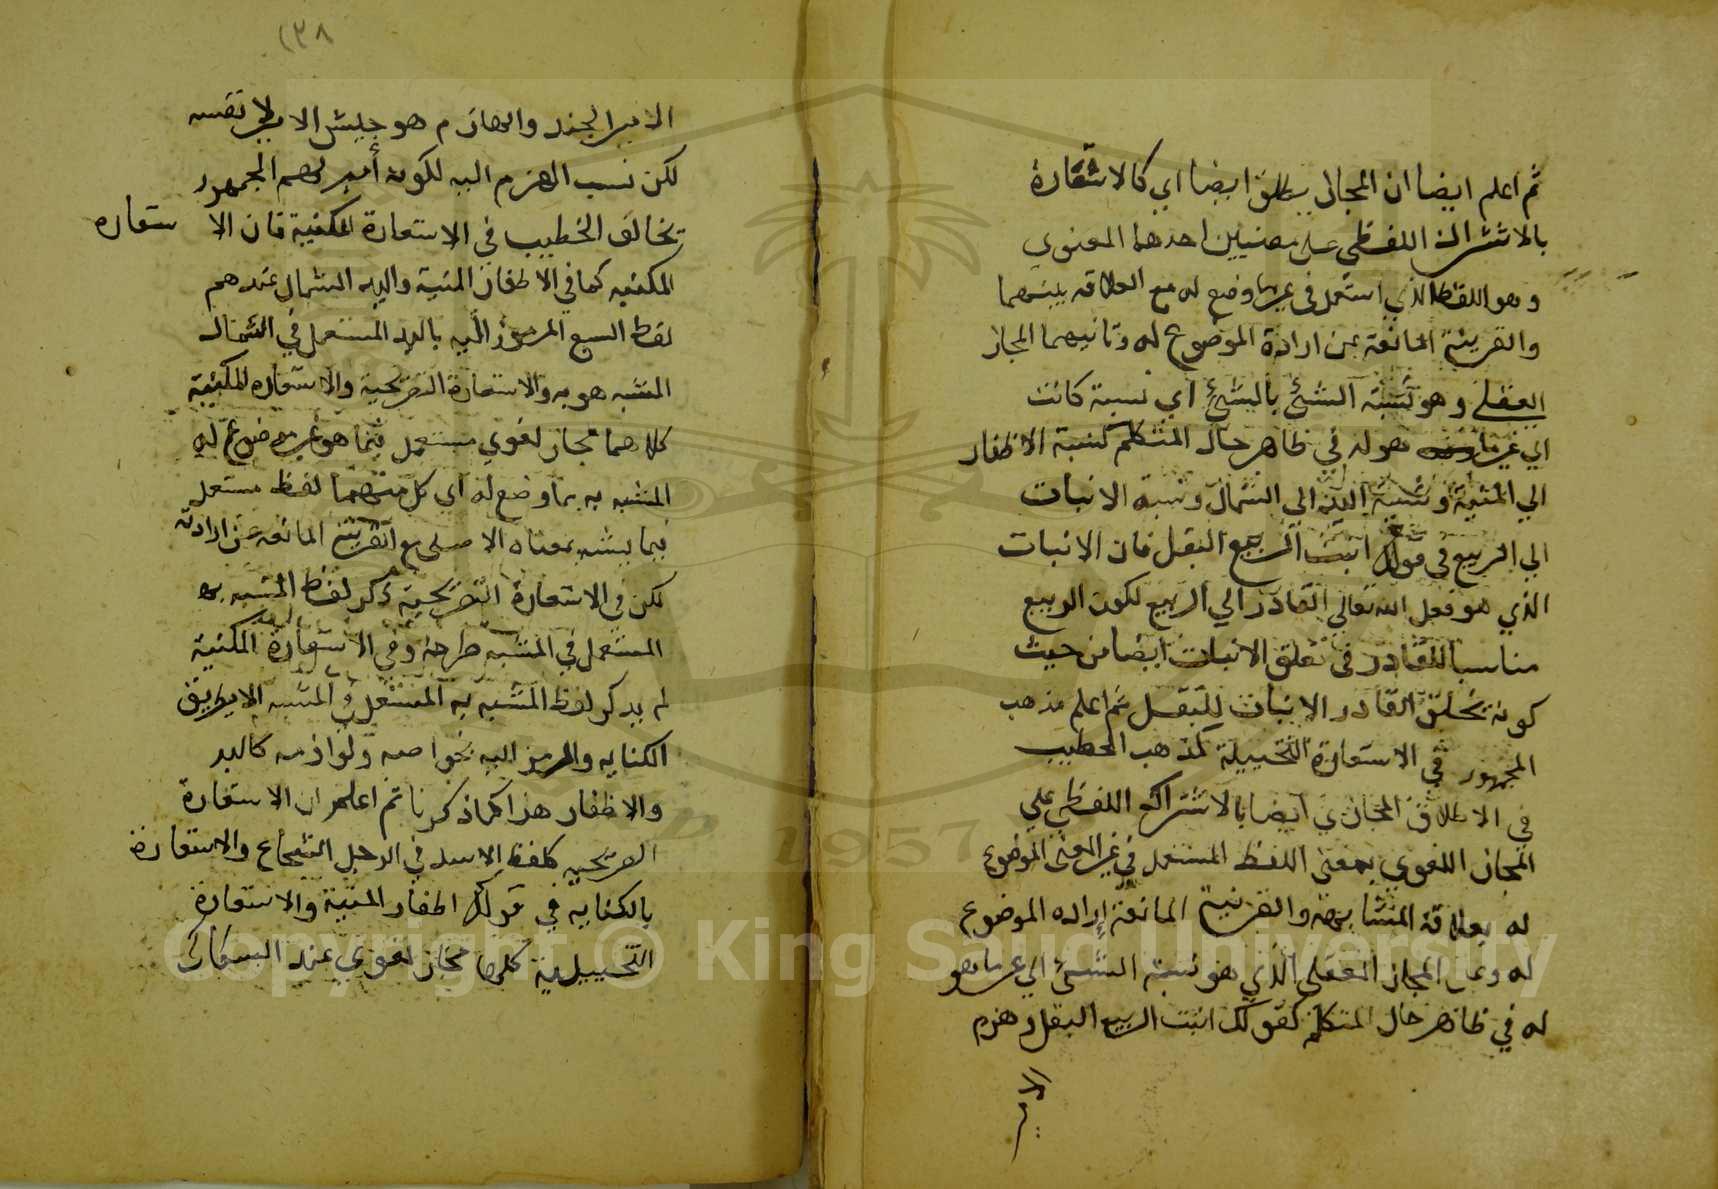 ثم اعلم ايضا ان المجاز يطلق ايضا اي كالاستعارة
بالاشتراك اللفظي على معنيين احدهما المعنوي
وهو اللفظ الذي استعمل في غير ما وضع له مع العلاقة بينهما
والقرينة المانعة عن ارادة الموضوع له وثانيهما المجاز
العقلي وهو نسبة الشئ بالشئ اي نسبة كانت
الي غير ما هو له في ظاهر حال المتكلم كنسبة الاظفار
الي المنية ونسبة اليد الي الشمال ونسبة الانبات
الي الربيع في قولك انبت الربيع البقل فان الانبات
الذي هو فعل الله تعالى القادر الي الربيع لكون الربيع
مناسبا للقادر في تعلق الانبات ايضا من حيث
كونه يخلق القادر الانبات للبقل ثم اعلم مذهب
الجمهور في الاستعارة التخييلية كمذهب الخطيب
في الاطلاق المجازي ايضا بالاشتراك اللفظي علي
المجاز اللغوي بمعنى اللفظ المستعمل في غير المعنى الموضوع
له بعلاقة المشابهة والقرينة المانعة ارادة الموضوع
له وعلى المجاز العقلي الذي هو نسبة الشئ الي غير ما هو
له في ظاهر حال المتكلم كقولك انبت الربيع البقل وهزم
الامير
١٣٨
الامير الجند والهازم هو جيش الامير لا نفسه
لكن نسب الهزم اليه لكونه أمير لهم الجمهور
تخالف الخطيب في الاستعارة المكنية فان الاستعارة
المكنية كما في الاظفار المنية واليد الشمال عندهم
لفظ السبع المرموز اليه باليد المستعمل في الشمال
المشبه هو به والاستعارة التصريحية والاستعارة المكنية
كلاهما مجاز لغوي مستعمل فيما هو غير موضوع له
المشبه به بما وضع له اي كل منهما لفظ مستعمل
فيما يشبه بمعناه الاصلي مع القرينة المانعة عن ارادته
لكن في الاستعارة التصريحية ذكر لفظ المشبه به
المستعمل في المشبه صراحة وفي الاستعارة المكنية
لم يذكر لفظ المشبه به المستعمل في المشبه الا بطريق
الكناية والرمز اليه بخواصه ولوازمه كاليد
والاظفار هذا كما ذكرنا ثم اعلم ان الاستعارة
الصريحيه كلفظ الاسد في الرجل الشجاع والاستعارة
بالكنايه في قولك اظفار المنية والاستعارة
التخييلية كلها مجاز لغوي عند السكاكي
1957
Copyright © King Saud University